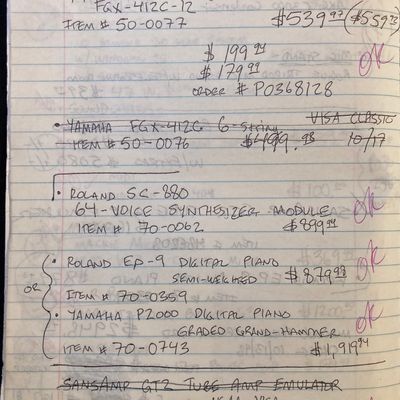 FGX-412C-12
ITEM # 50-0077 $539.97 ($559.93)
$199.99 OK
$179.99
ORDER # P0368128
• YAMAHA FGX-412C 6-String VISA CLASSIC
ITEM # 50-0076 $499.98 10/17
• ROLAND SC-880
64-VOICE SYNTHESIZER MODULE OK
ITEM # 70-0062 $899.99
• ROLAND EP-9 DIGITAL PIANO OK
SEMI-WEIGHTED $879.98
OR ITEM # 70-0359
• YAMAHA P2000 DIGITAL PIANO OK
GRADED GRAND-HAMMER
ITEM # 70-0743 $1,919.94
SANSAMP GT2 TUBE AMP EMULATOR